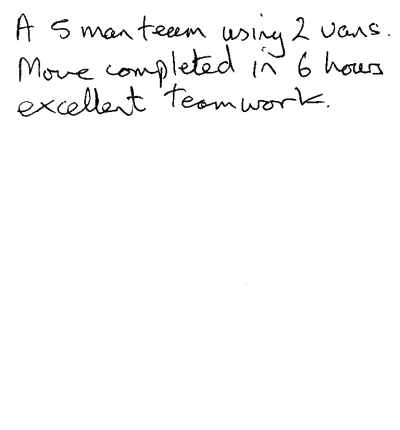 A 5 man team using 2 vans.
Move completed in 6 hours
excellent teamwork.